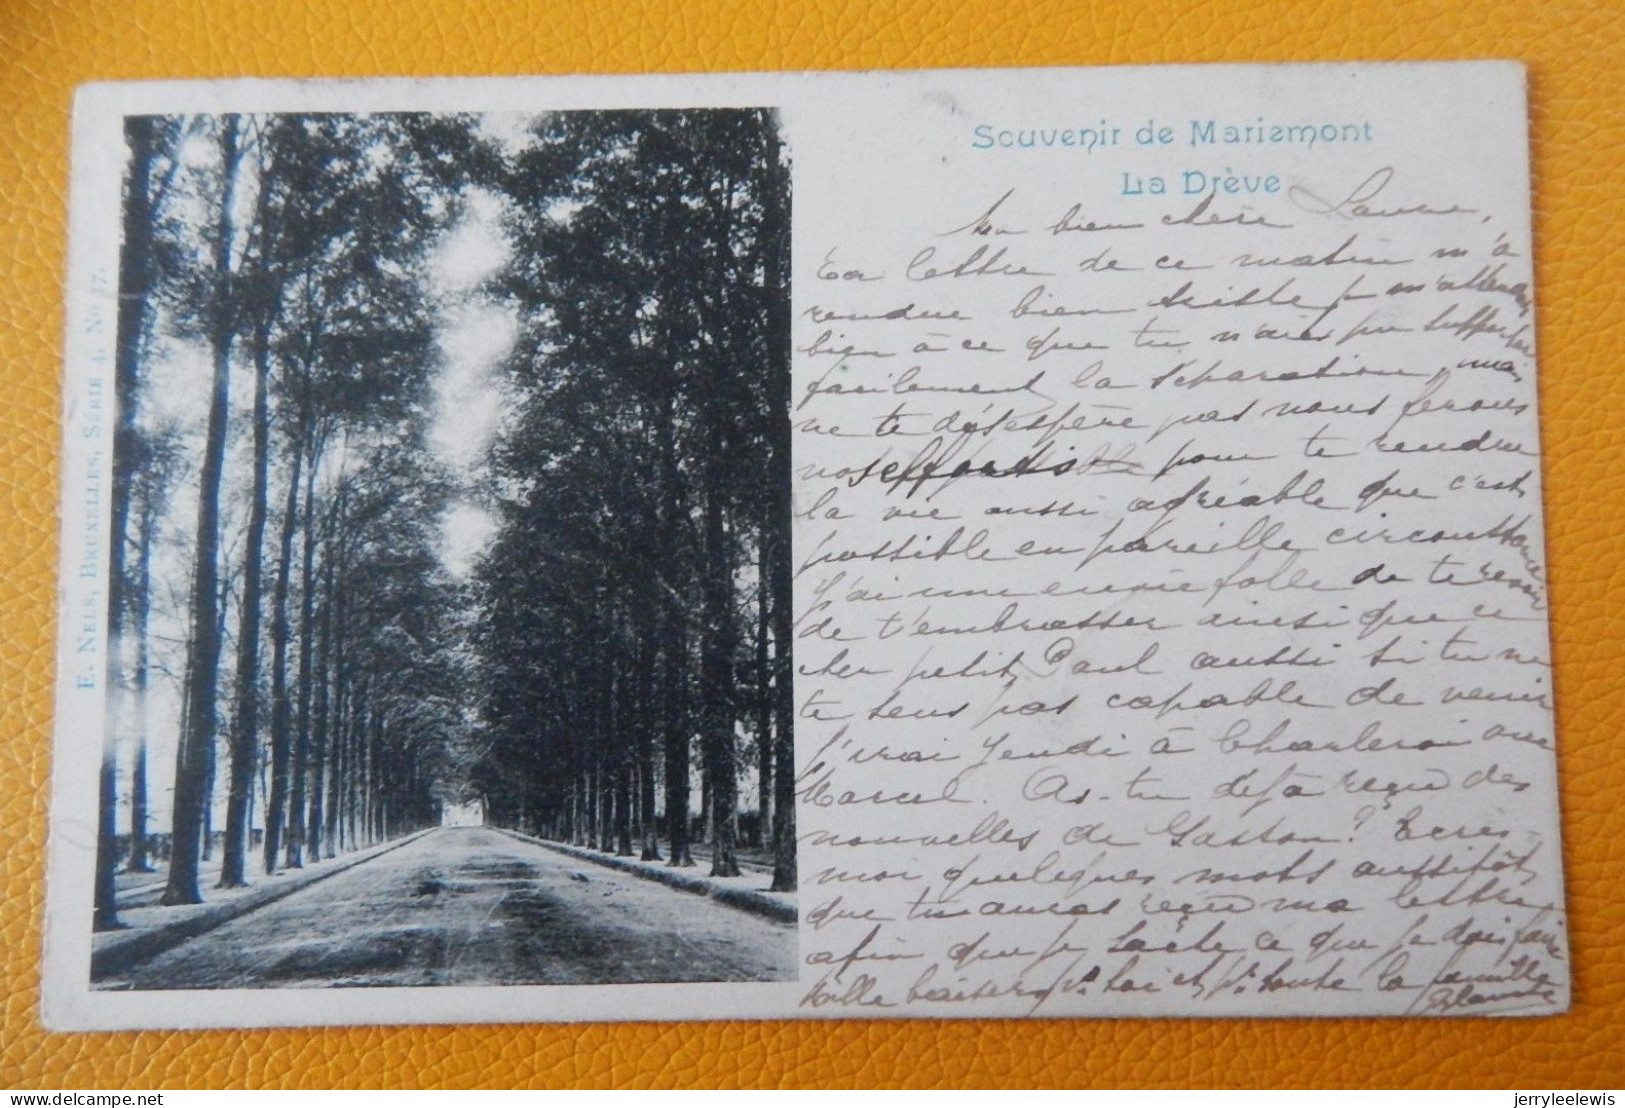 E. Nels, Bruxelles, Serie 4, No 17.
Souvenir de Mariemont
La Drève
Ma bien chère Laure,
Ta lettre de ce matin m'a
rendue bien triste je m'attendais
bien à ce que tu n'aies pu supporter
facilement la séparation, mais
ne te désespère pas nous ferons
nos efforts pour te rendre
la vie aussi agréable que c'est
possible en pareille circonstance
J'ai une envie folle de te revoir
de t'embrasser ainsi que ce
cher petit Paul aussi si tu ne
te sens pas capable de venir
j'irai Jeudi à Charleroi avec
Marcel. As-tu déjà reçu des
nouvelles de Gaston? Ecris-
moi quelques mots aussitôt
que tu auras reçu ma lettre
afin que je sache ce que je dois faire
Mille baisers pr toi et pr toute la famille
delcampe.net
jerryleelewis